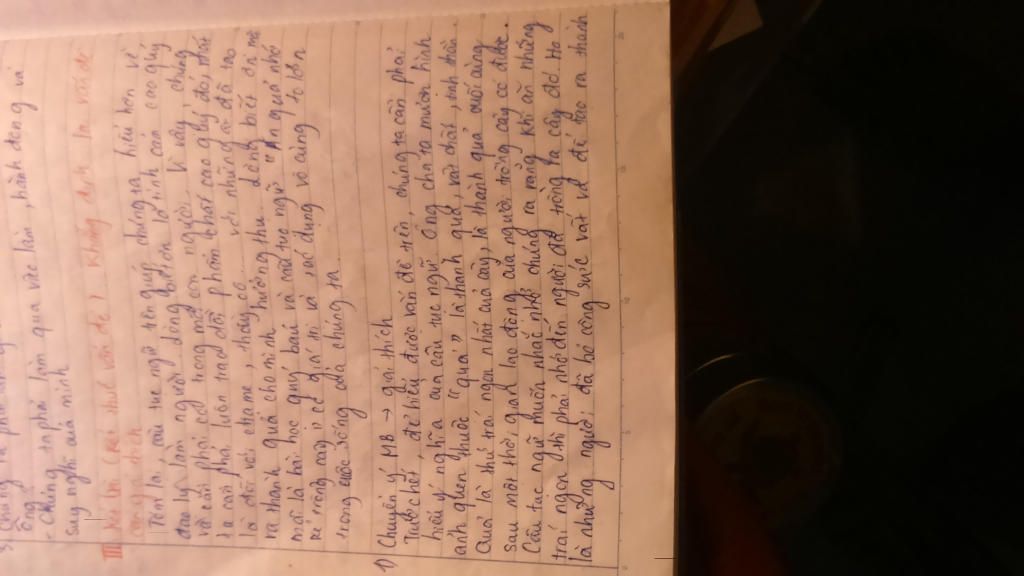 ông
- Chúng ta phải làm qua việc làm, hành động và
suy nghĩ của mình
III Kết bài (kết thúc vấn đề) khẳng định lại vấn đề
cần giải thích
Tóm lại, câu tục ngữ trên giúp chúng ta hiểu hơn về
đạo lý làm người, lòng biết ơn là tính cao quý
và cần phải có trong mỗi con người. Vì vậy chúng
ta cần phải luôn trao dồi phẩm chất cao quý đó, nhất
là đối với cha mẹ, thầy cô với những ai đã tạo
ra thành quả cho mình hưởng thụ. Lòng biết ơn mẹ
mãi là bài học quý báu và câu tục ngữ "Ăn quả nhớ
kẻ trồng cây" có giá trị và tác dụng vô cùng to lớn
trong cuộc sống của chúng ta.
1) Chuyển ý MB → giải thích
Trước hết, để hiểu được vấn đề trên, chúng ta cần phải
hiểu ý nghĩa của câu tục ngữ. Ông cha ta mượn hình
ảnh quen thuộc "quả" là thành quả, vật chất, tinh thần
Quả là thứ trái ngon nhất của cây, là thành quả cuối cùng
sau một thời gian lao động của người trồng cây có được.
Câu tục ngữ muốn nhắc nhở chúng ta rằng khi ăn những
trái ngon thì phải nhớ đến người đã trồng ra cây đó. Họ
là những người đã bỏ công sức vất vả để tạo ra thành